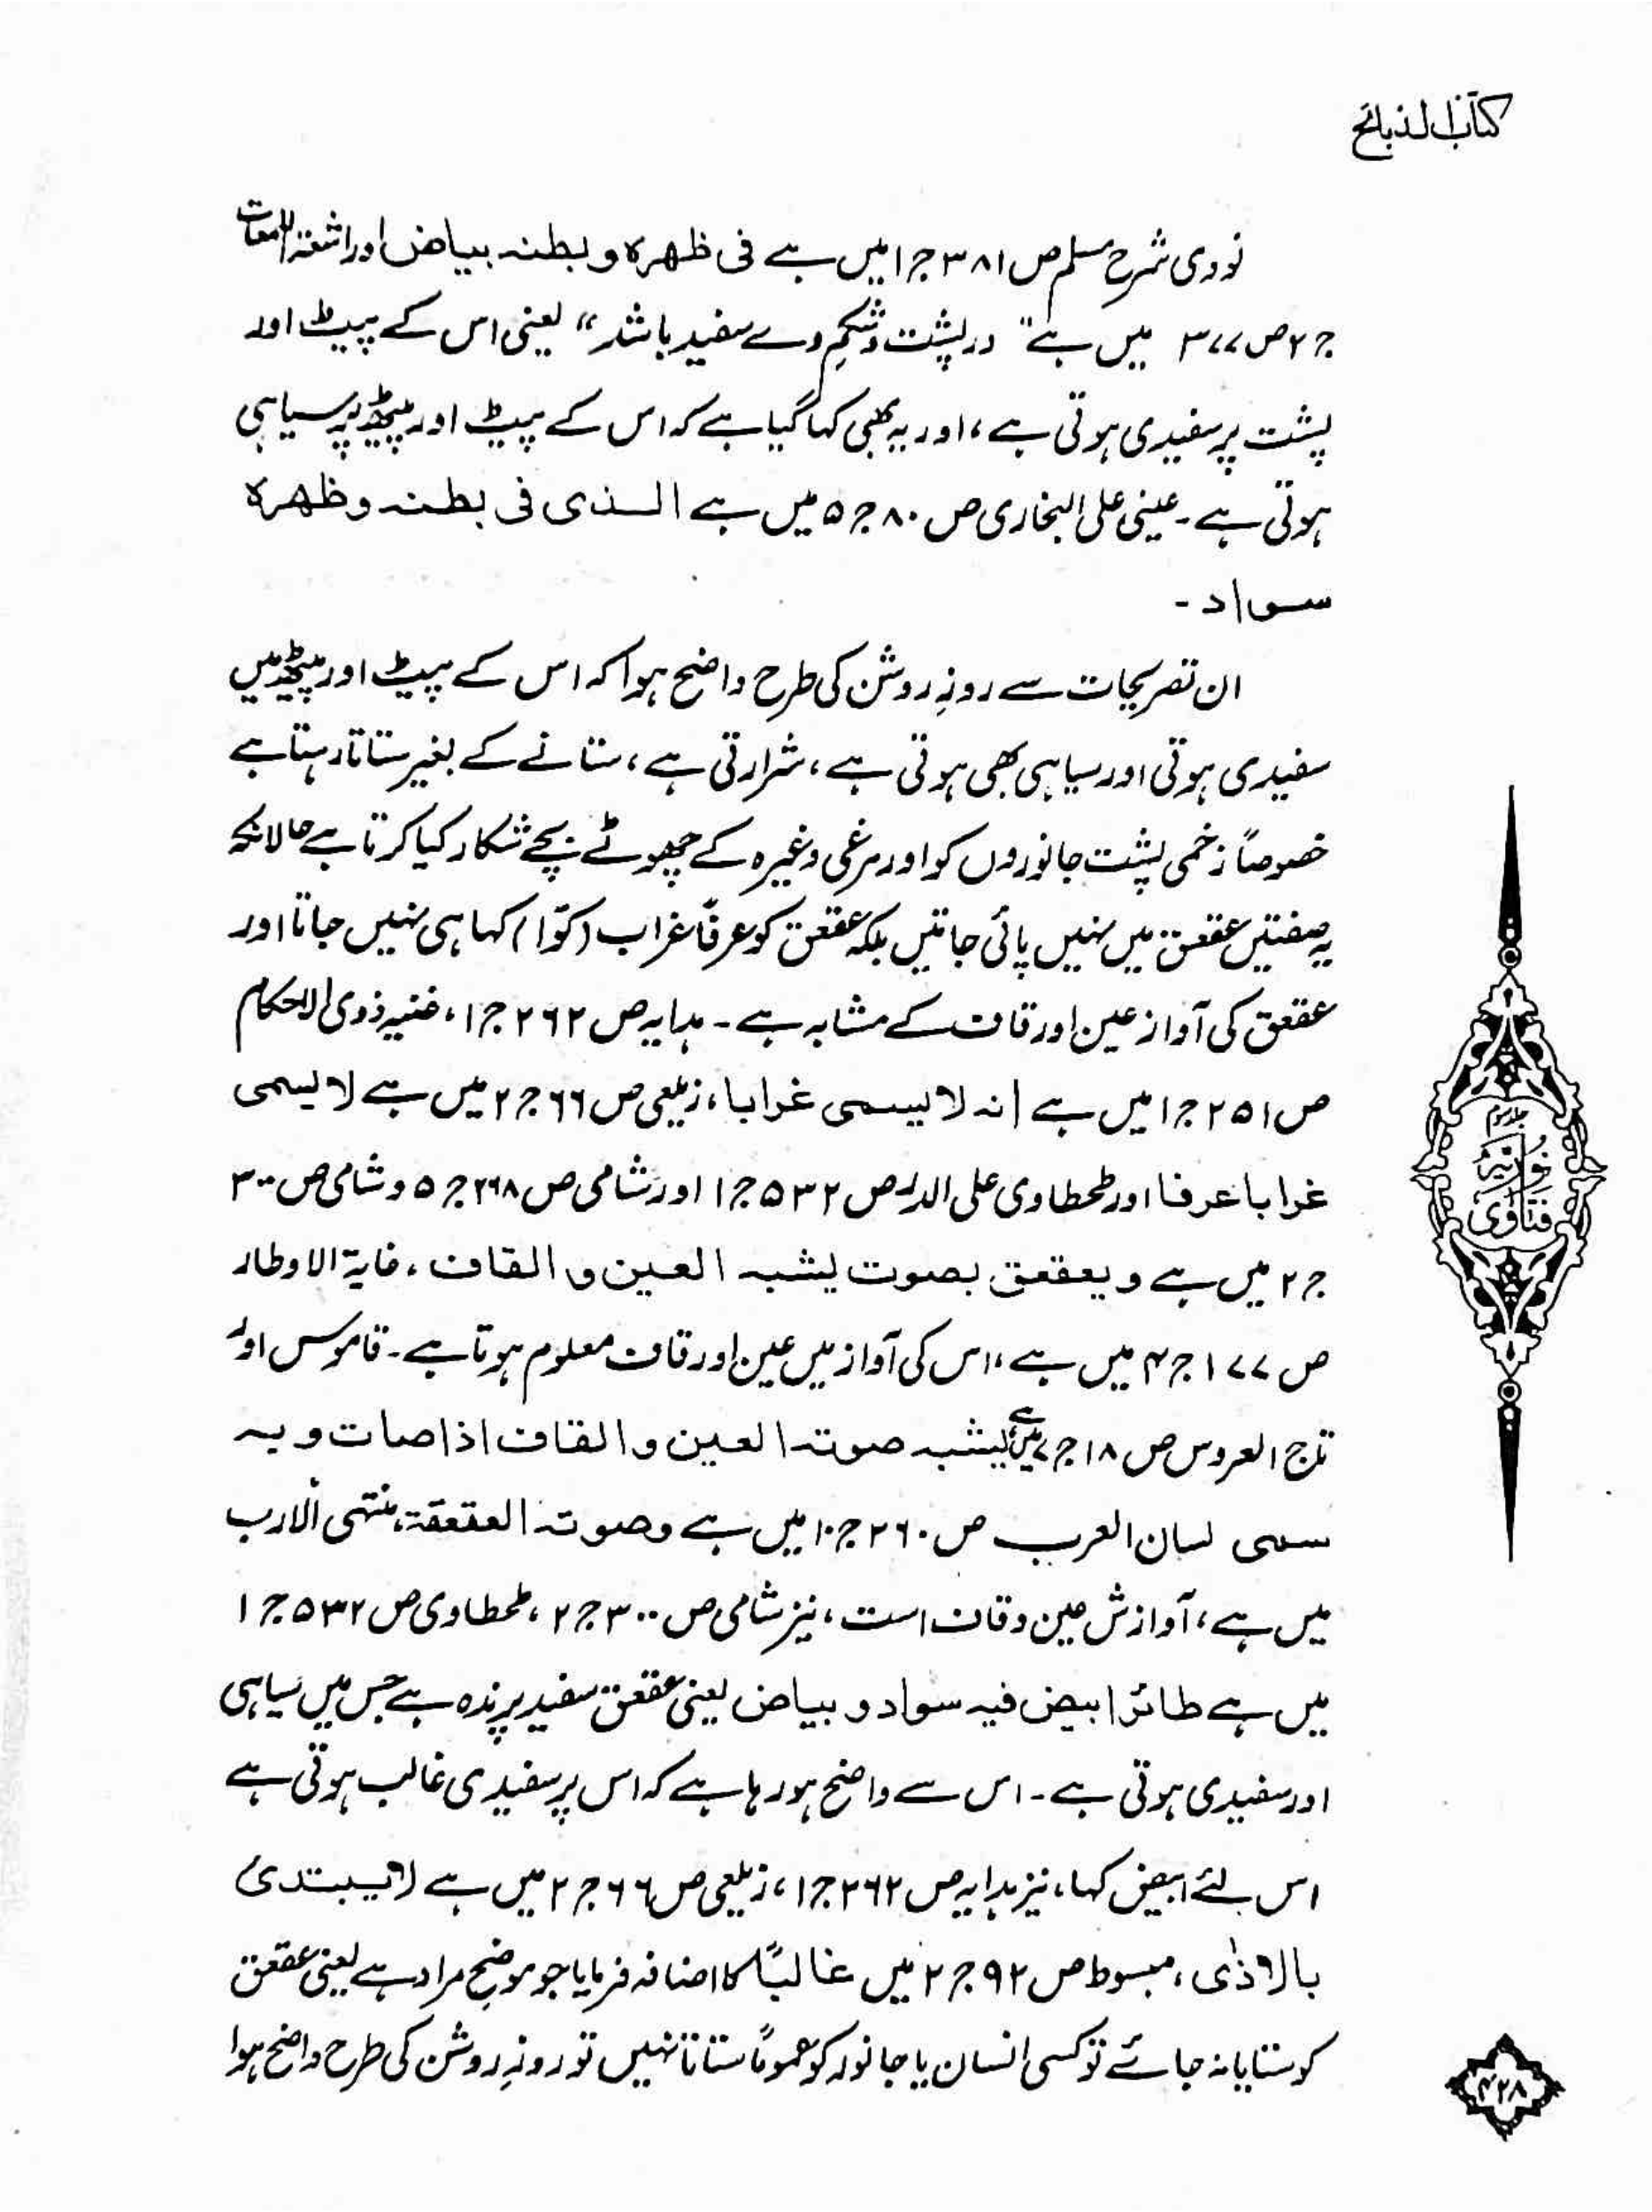 کتاب الذبائح
نووی شرح مسلم ص ۳۸۱ ج ۱ میں ہے فی ظھرہ و بطنہ بیاض اور اشعۃ اللمعات
ج ۲ ص ۳۷۷ میں ہے " در پشت و شکم وے سفید باشد " یعنی اس کے پیٹ اور
پشت پر سفیدی ہوتی ہے، اور یہ بھی کہا گیا ہے کہ اس کے پیٹ اور پیٹھ پر سیاہی
ہوتی ہے۔ عینی علی البخاری ص ۸۰ ج ۵ میں ہے الذی فی بطنہ وظھرہ
سواد۔
ان تصریحات سے روزِ روشن کی طرح واضح ہوا کہ اس کے پیٹ اور پیٹھ میں
سفیدی ہوتی اور سیاہی بھی ہوتی ہے، شرارتی ہے، ستانے کے بغیر ستاتا رہتا ہے
خصوصاً زخمی پشت جانوروں کو اور مرغی وغیرہ کے چھوٹے بچے شکار کیا کرتا ہے حالانکہ
یہ صفتیں عقعق میں نہیں پائی جاتیں بلکہ عقعق کو عرفاً غراب (کوّا) کہا ہی نہیں جاتا اور
عقعق کی آواز عین اور قاف کے مشابہ ہے۔ ہدایہ ص ۲۶۲ ج ۱، غنیہ ذوی الاحکام
ص ۲۵۱ ج ۱ میں ہے انہ لا یسمی غرابا، زیلعی ص ۶۶ ج ۲ میں ہے لا یسمی
غرابا عرفا اور طحطاوی علی الدر ص ۵۳۲ ج ۱ اور شامی ص ۲۶۸ ج ۵ و شامی ص ۳۰۰
ج ۲ میں ہے و یعقعق بصوت یشبہ العین و القاف، غایۃ الاوطار
ص ۱۷۷ ج ۴ میں ہے، اس کی آواز میں عین اور قاف معلوم ہوتا ہے۔ قاموس اور
تاج العروس ص ۱۸ ج ۷ میں ہے یشبہ صوتہ العین و القاف اذا صات و بہ
سمی لسان العرب ص ۲۶۰ ج ۱۰ میں ہے وصوتہ العقعقۃ، منتہی الارب
میں ہے، آوازش عین و قاف است، نیز شامی ص ۳۰۰ ج ۲، طحطاوی ص ۵۳۲ ج ۱
میں ہے طائر ابیض فیہ سواد و بیاض یعنی عقعق سفید پرندہ ہے جس میں سیاہی
اور سفیدی ہوتی ہے۔ اس سے واضح ہو رہا ہے کہ اس پر سفیدی غالب ہوتی ہے
اس لئے ابیض کہا، نیز ہدایہ ص ۲۶۲ ج ۱، زیلعی ص ۶۶ ج ۲ میں ہے لا یبتدئ
بالاذٰی، مبسوط ص ۹۲ ج ۲ میں غالبًا کا اضافہ فرمایا جو موضحِ مراد ہے یعنی عقعق
کو ستایا نہ جائے تو کسی انسان یا جانور کو عموماً ستاتا نہیں تو روزِ روشن کی طرح واضح ہوا
جلد سوم
نوریہ
فتاوٰی
۴۲۸